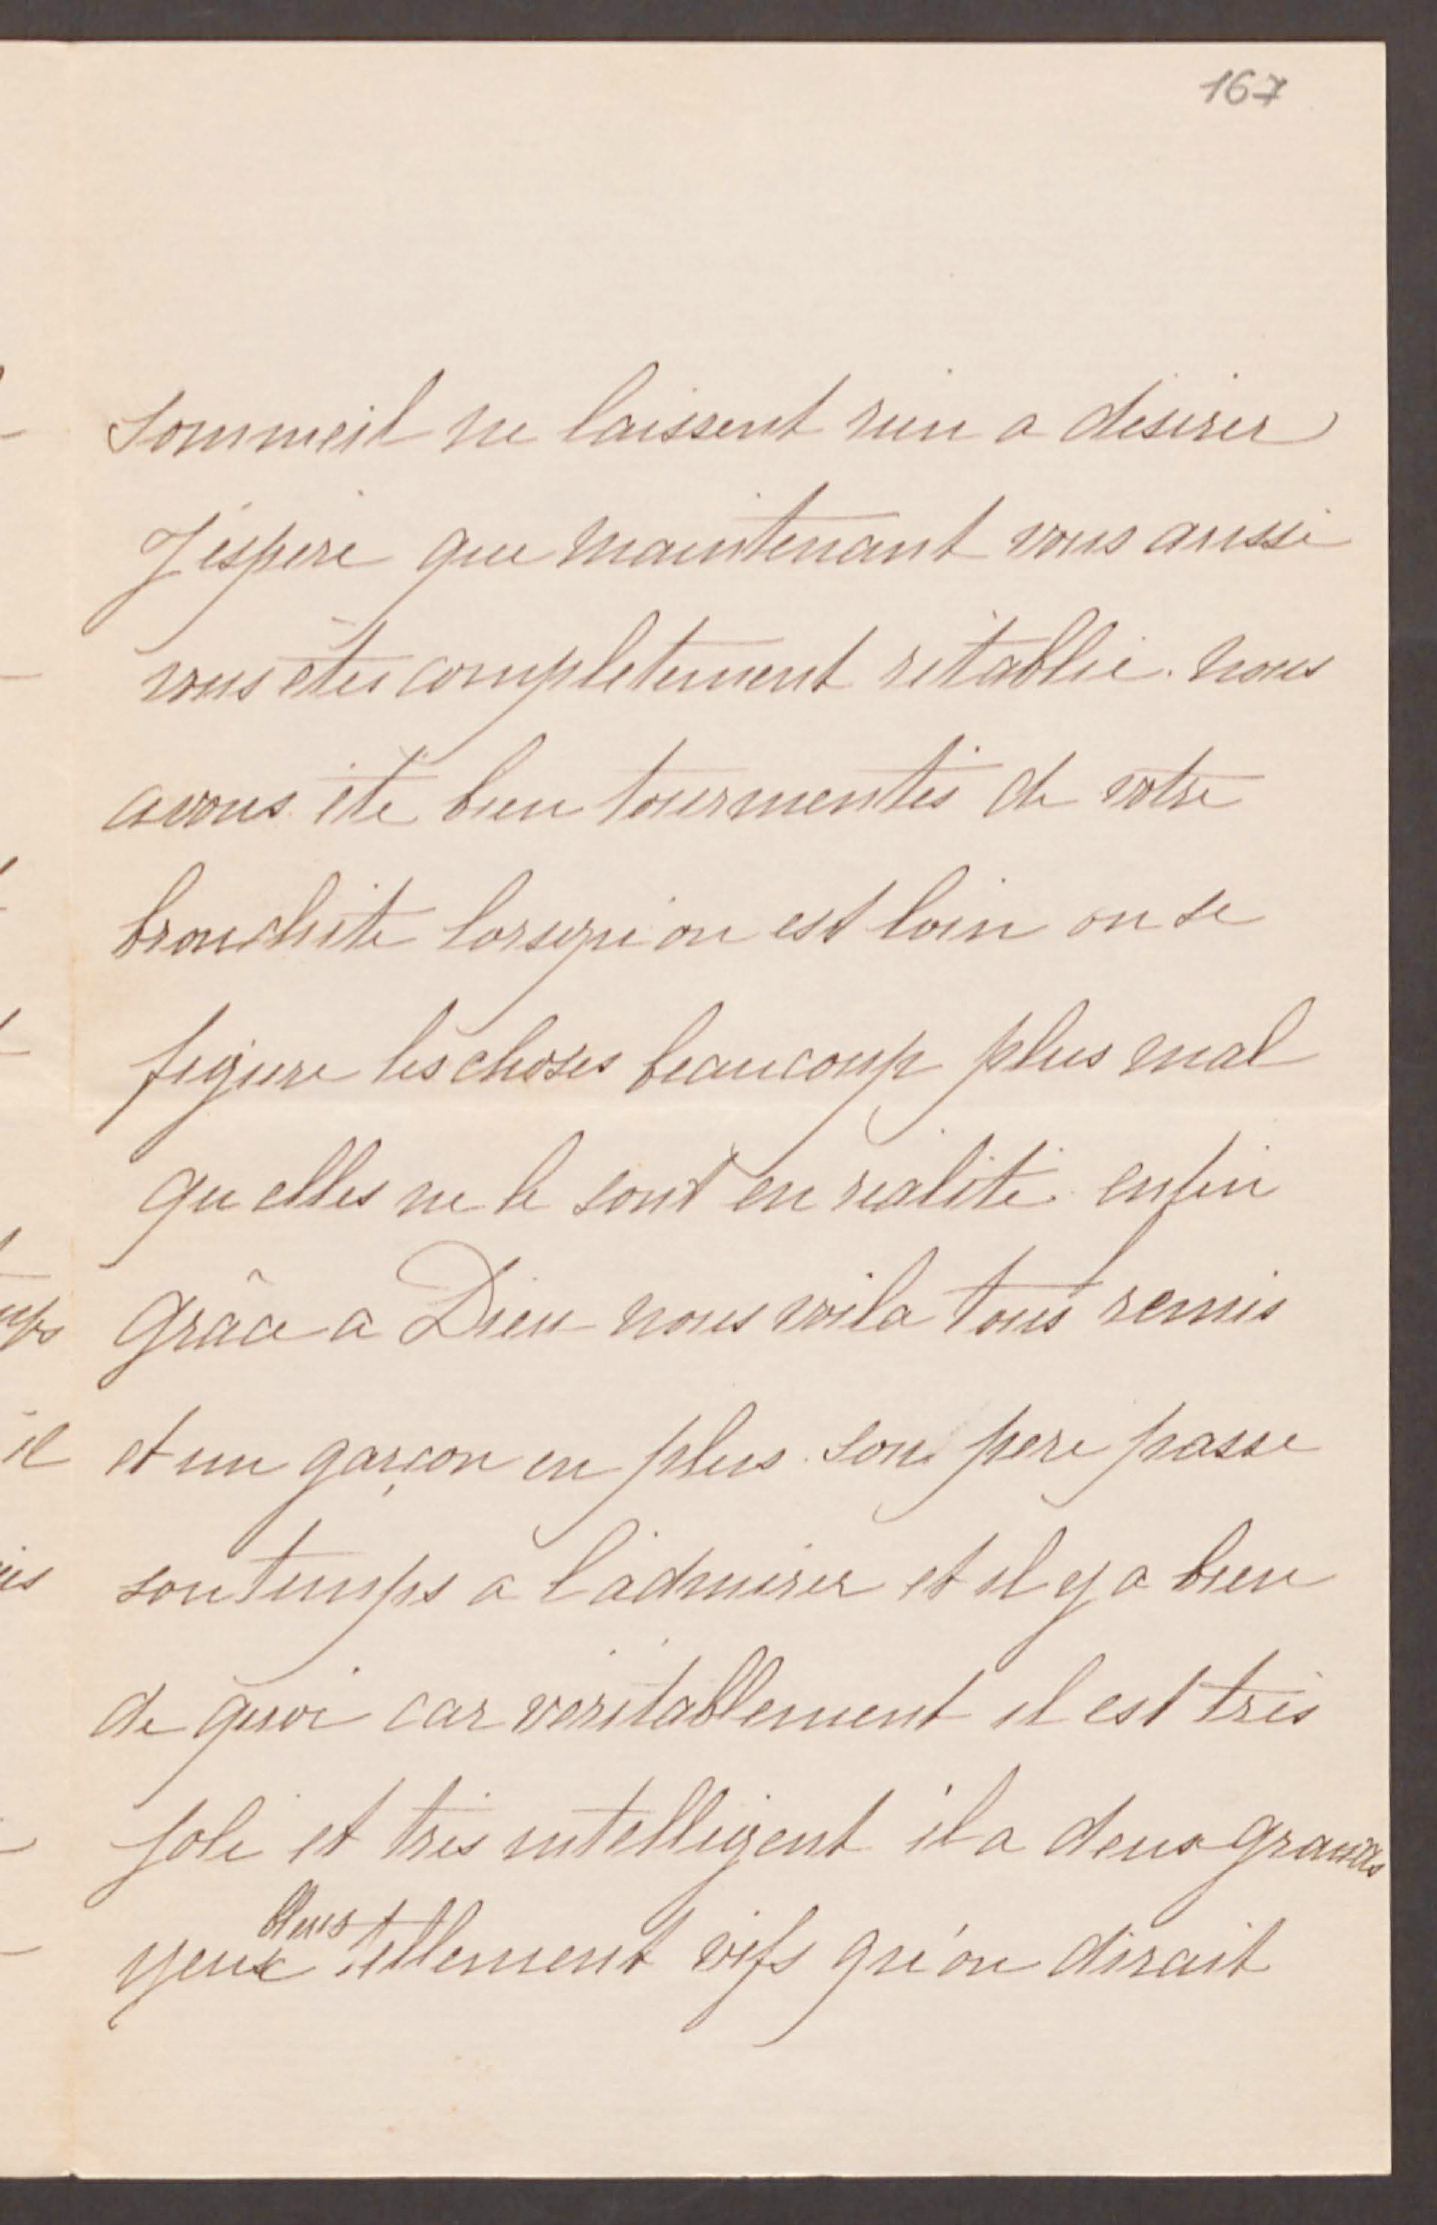 167
sommeil ne laissent rien a désirer
J'espère que maintenant vous aussi
vous êtes completement rétablie. nous
avons été bien tourmentés de votre
bronchite lorsqu'on est loin on se
figure les choses beaucoup plus mal
qu'elles ne le sont en réalité. enfin
grâce a Dieu nous voila tous remis
et un garçon en plus. son pere passe
son temps a l'admirer et il y a bien
de quoi car véritablement il est très
joli et très intelligent il a deux grands
yeux bleus tellement vifs qu'on dirait